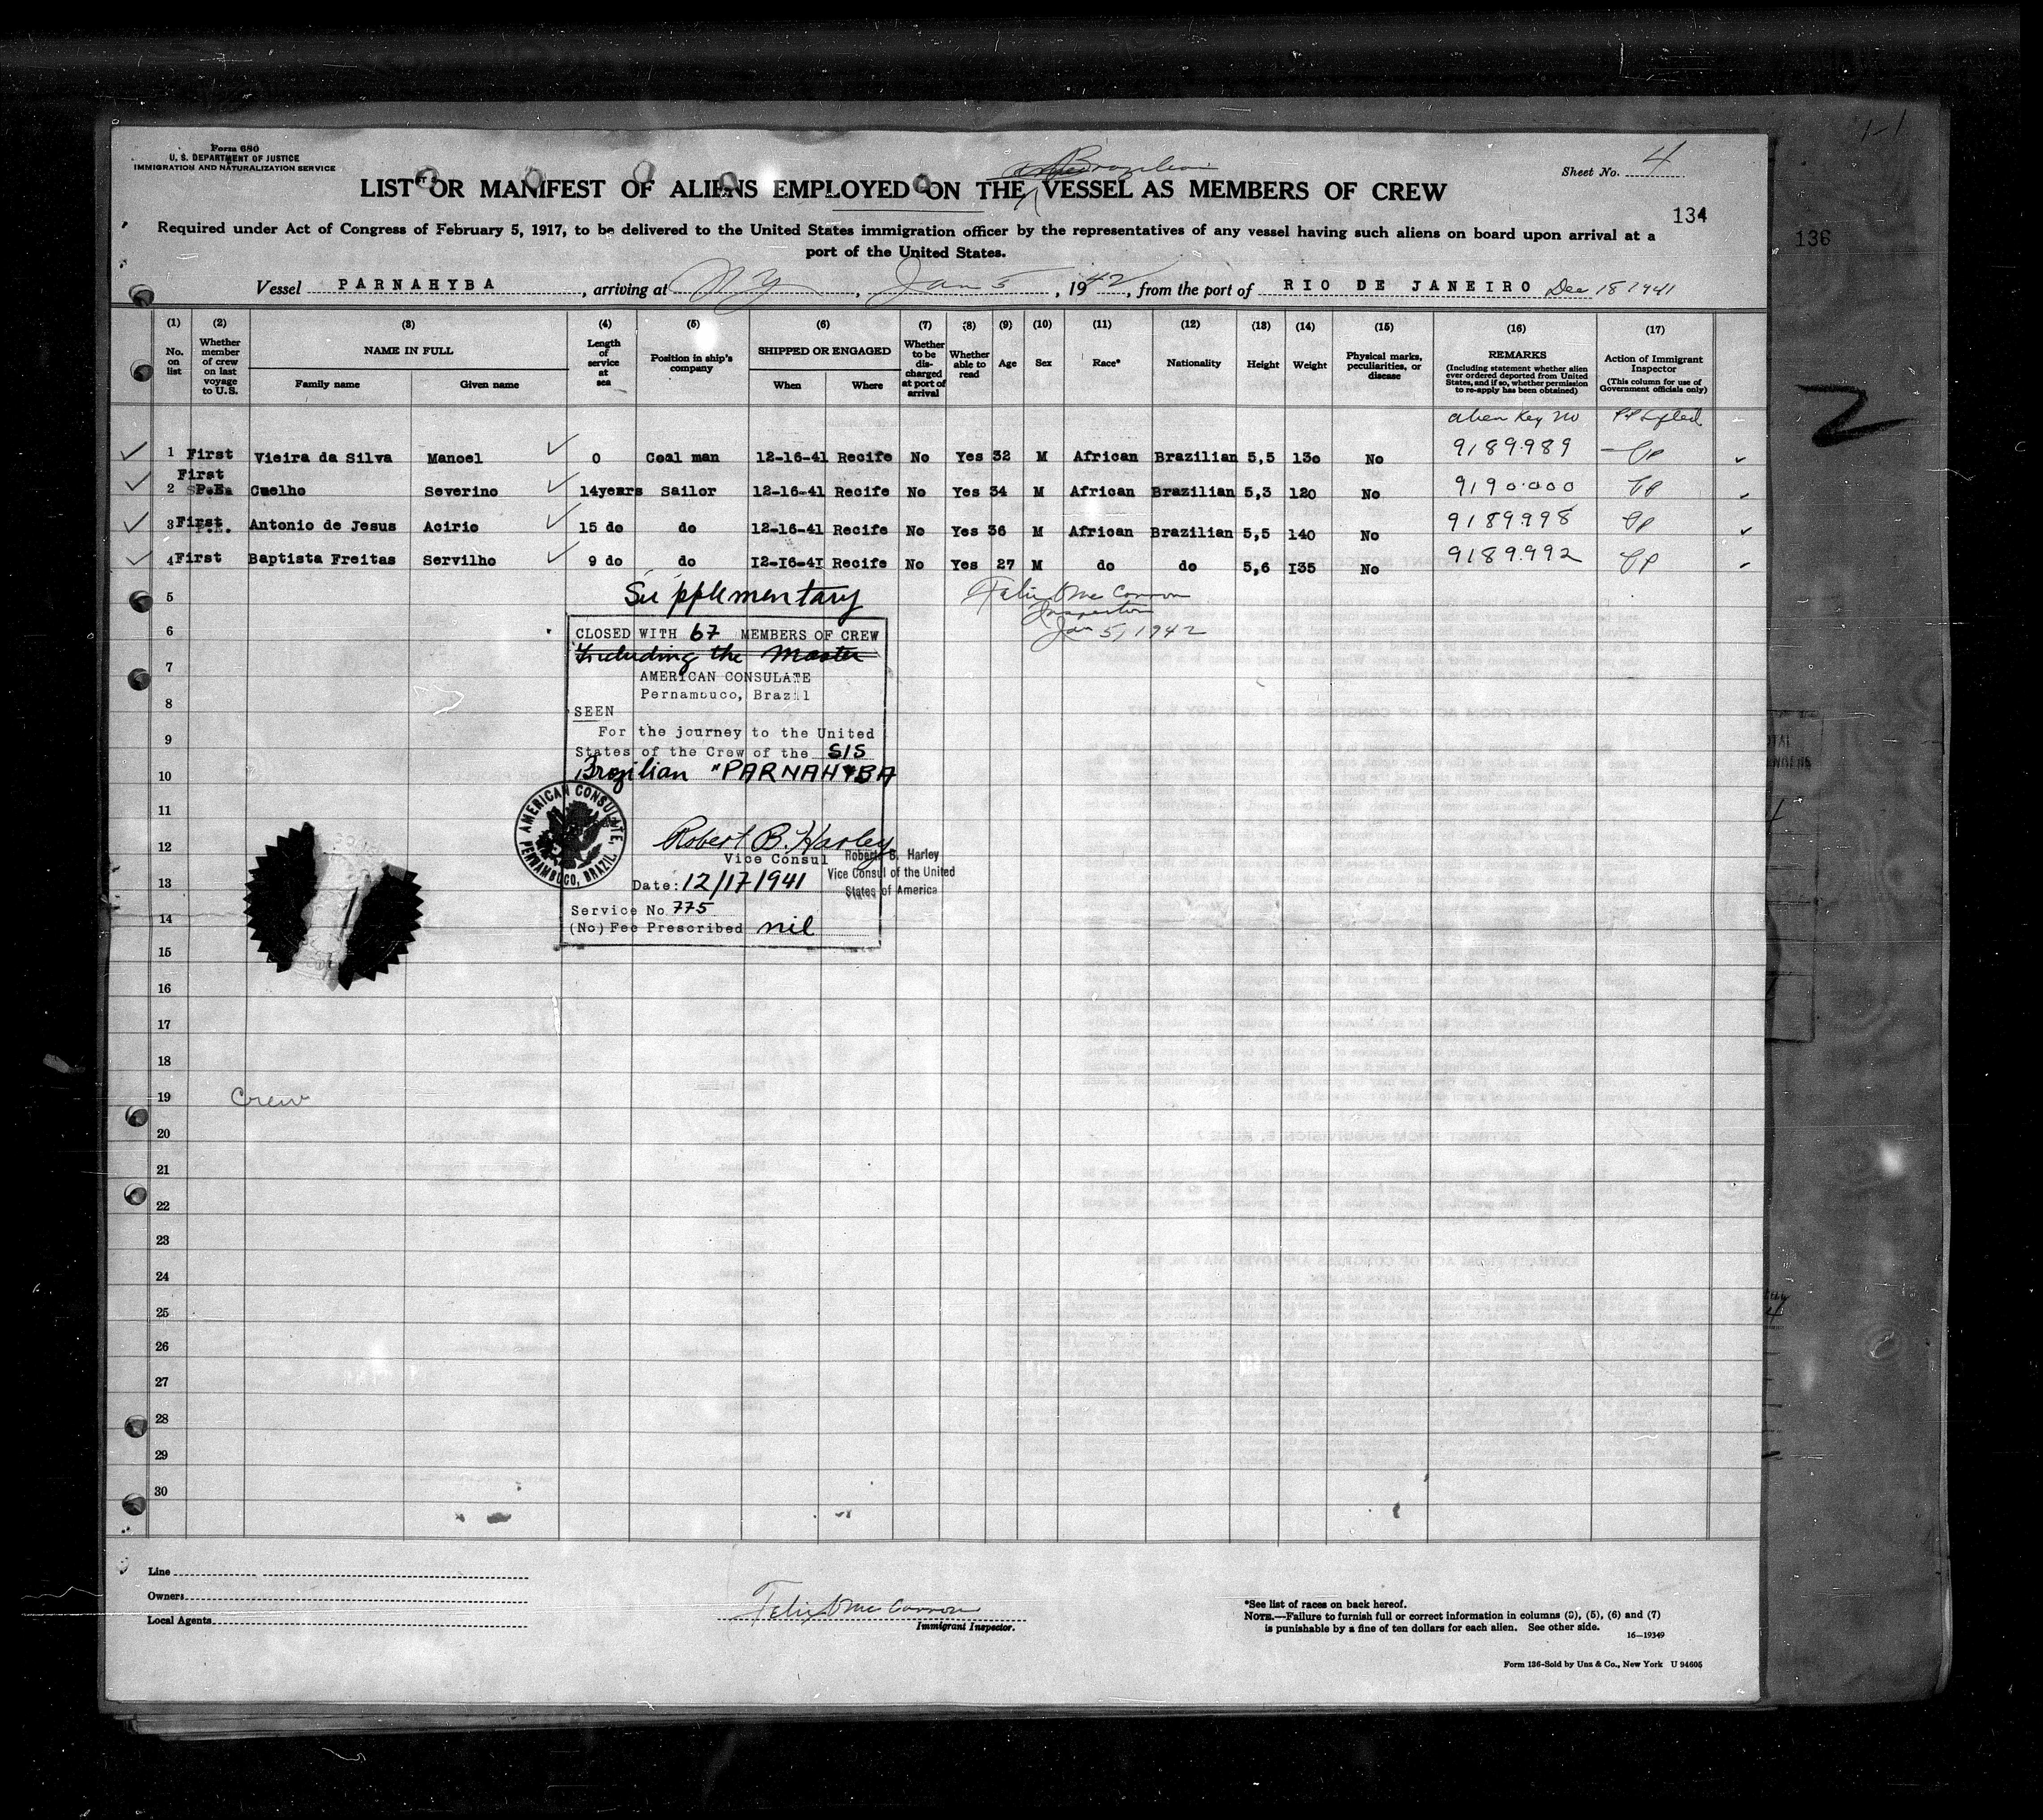 Form 680
U. S. DEPARTMENT OF JUSTICE
IMMIGRATION AND NATURALIZATION SERVICE
Sheet No. 4
Brazilian
LIST OR MANIFEST OF ALIENS EMPLOYED ON THE VESSEL AS MEMBERS OF CREW
134
136
Required under Act of Congress of February 5, 1917, to be delivered to the United States immigration officer by the representatives of any vessel having such aliens on board upon arrival at a
port of the United States.
Vessel PARNAHYBA, arriving at NY, Jan 5, 1942, from the port of RIO DE JANEIRO Dec 18 1941
(1) No. on list
(2) Whether member of crew on last voyage to U.S.
(3) NAME IN FULL Family name Given name
(4) Length of service at sea
(5) Position in ship's company
(6) SHIPPED OR ENGAGED When Where
(7) Whether to be discharged at port of arrival
(8) Whether able to read
(9) Age
(10) Sex
(11) Race*
(12) Nationality
(13) Height
(14) Weight
(15) Physical marks, peculiarities, or disease
(16) REMARKS (Including statement whether alien ever ordered deported from United States, and if so, whether permission to re-apply has been obtained)
(17) Action of Immigrant Inspector (This column for use of Government officials only)
alien Reg no
1 First Vieira da Silva Manoel 0 Coal man 12-16-41 Recife No Yes 32 M African Brazilian 5,5 130 No 9189989
2 First Cuelho Severino 14years Sailor 12-16-41 Recife No Yes 34 M African Brazilian 5,3 120 No 9190000
3 First Antonio de Jesus Acirio 15 do do 12-16-41 Recife No Yes 36 M African Brazilian 5,5 140 No 9189998
4 First Baptista Freitas Servilho 9 do do I2-I6-4I Recife No Yes 27 M do do 5,6 I35 No 9189992
5
Supplementary
Inspector
Jan 5, 1942
6
CLOSED WITH 67 MEMBERS OF CREW
Including the Master
7
AMERICAN CONSULATE
Pernambuco, Brazil
8
SEEN
9
For the journey to the United
States of the Crew of the S/S
10
Brazilian "PARNAHYBA
11
AMERICAN CONSULATE, PERNAMBUCO, BRAZIL.
12
Robert B. Harley
Vice Consul
Robert B. Harley
Vice Consul of the United
States of America
13
Date: 12/17/1941
14
Service No 775
(No) Fee Prescribed nil
15
16
17
18
19
Crew
20
21
22
23
24
25
26
27
28
29
30
Line
Owners
Local Agents
Immigrant Inspector.
*See list of races on back hereof.
NOTE.—Failure to furnish full or correct information in columns (3), (5), (6) and (7)
is punishable by a fine of ten dollars for each alien. See other side.
16—19349
Form 136-Sold by Unz & Co., New York U 94605